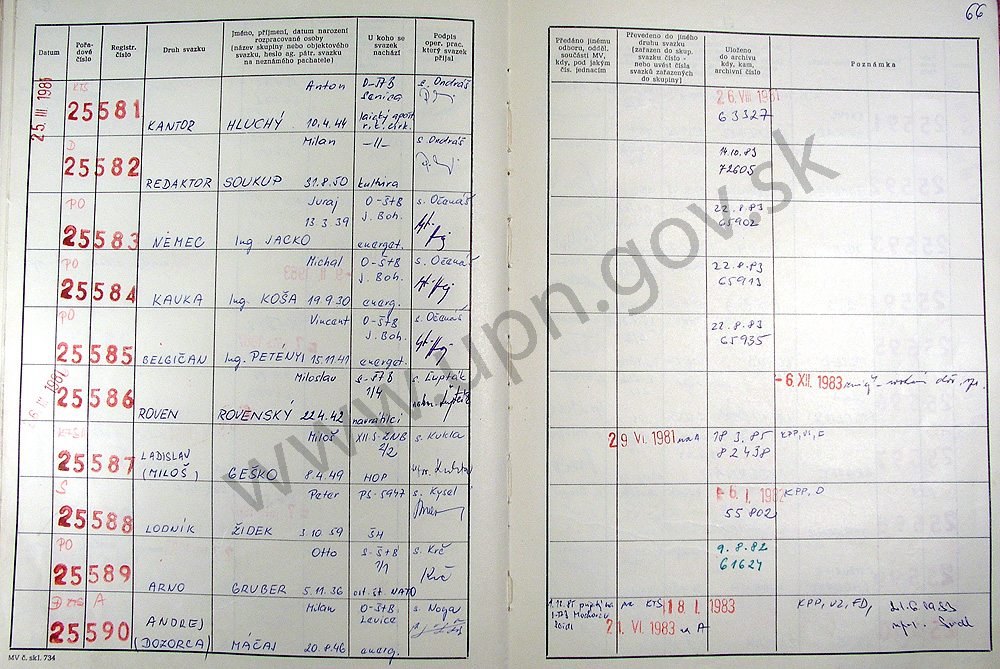 66
Datum
Pořadové číslo
Registr. číslo
Druh svazku
Jméno, příjmení, datum narození rozpracované osoby (název skupiny nebo objektového svazku, heslo ag. pátr. svazku na neznámého pachatele)
U koho se svazek nachází
Podpis oper. prac. který svazek přijal
Předáno jinému odboru, odděl. součásti MV, kdy, pod jakým čís. jednacím
Převedeno do jiného druhu svazku (zařazen do skup. svazku číslo - nebo uvést čísla svazků zařazených do skupiny)
Uloženo do archivu kdy, kam, archivní číslo
Poznámka
25 III 1981
KTS 25581 KANTOR Anton HLUCHÝ 10.4.44 Senica s. Ondráš
26. VIII 1981
63327
D 25582 REDAKTOR Milan SOUKUP 31.8.50 -11- kultúra s. Ondráš
14.10.83
72605
PO 25583 NEMEC Juraj 13.3.39 Ing JACKO O-ŠtB J. Boh. energet. s. Očenáš
22.8.83
65902
PO 25584 KAVKA Michal Ing. KOŠA 19.9.30 O-ŠtB J. Boh. energ. s. Očenáš
22.8.83
65913
PO 25585 BELGIČAN Vincent Ing. PETÉNYI 15.11.41 O-ŠtB J. Boh. energet. s. Očenáš
22.8.83
65935
25586 ROVEN Miloslav ROVENSKÝ 22.4.42 navrátilci s. Lupták
- 6. XII. 1983
25587 LADISLAV (MILOŠ) Miloš GEŠKO 8.4.49 XII S-ZNB HOP s. Kukla
29 VI. 1981 na A
18 3. 85
82438
S 25588 LODNÍK Peter ŽIDEK 3.10.59 PS-5947 s. Kysel
- 6. I. 1982 KPP, D
55802
PO 25589 ARNO Otto GRUBER 5.11.36 S-ŠtB NATO s. Krč
9.8.82
61624
A 25590 ANDREJ (DOZORCA) Milan MÁČAJ 20.8.46 O-ŠtB Levice energ. s. Noga
na KTS 18 I. 1983
21. VI. 1983 na A
KPP, VZ, FD, 21.6.1983
MV č. skl. 734
www.upn.gov.sk